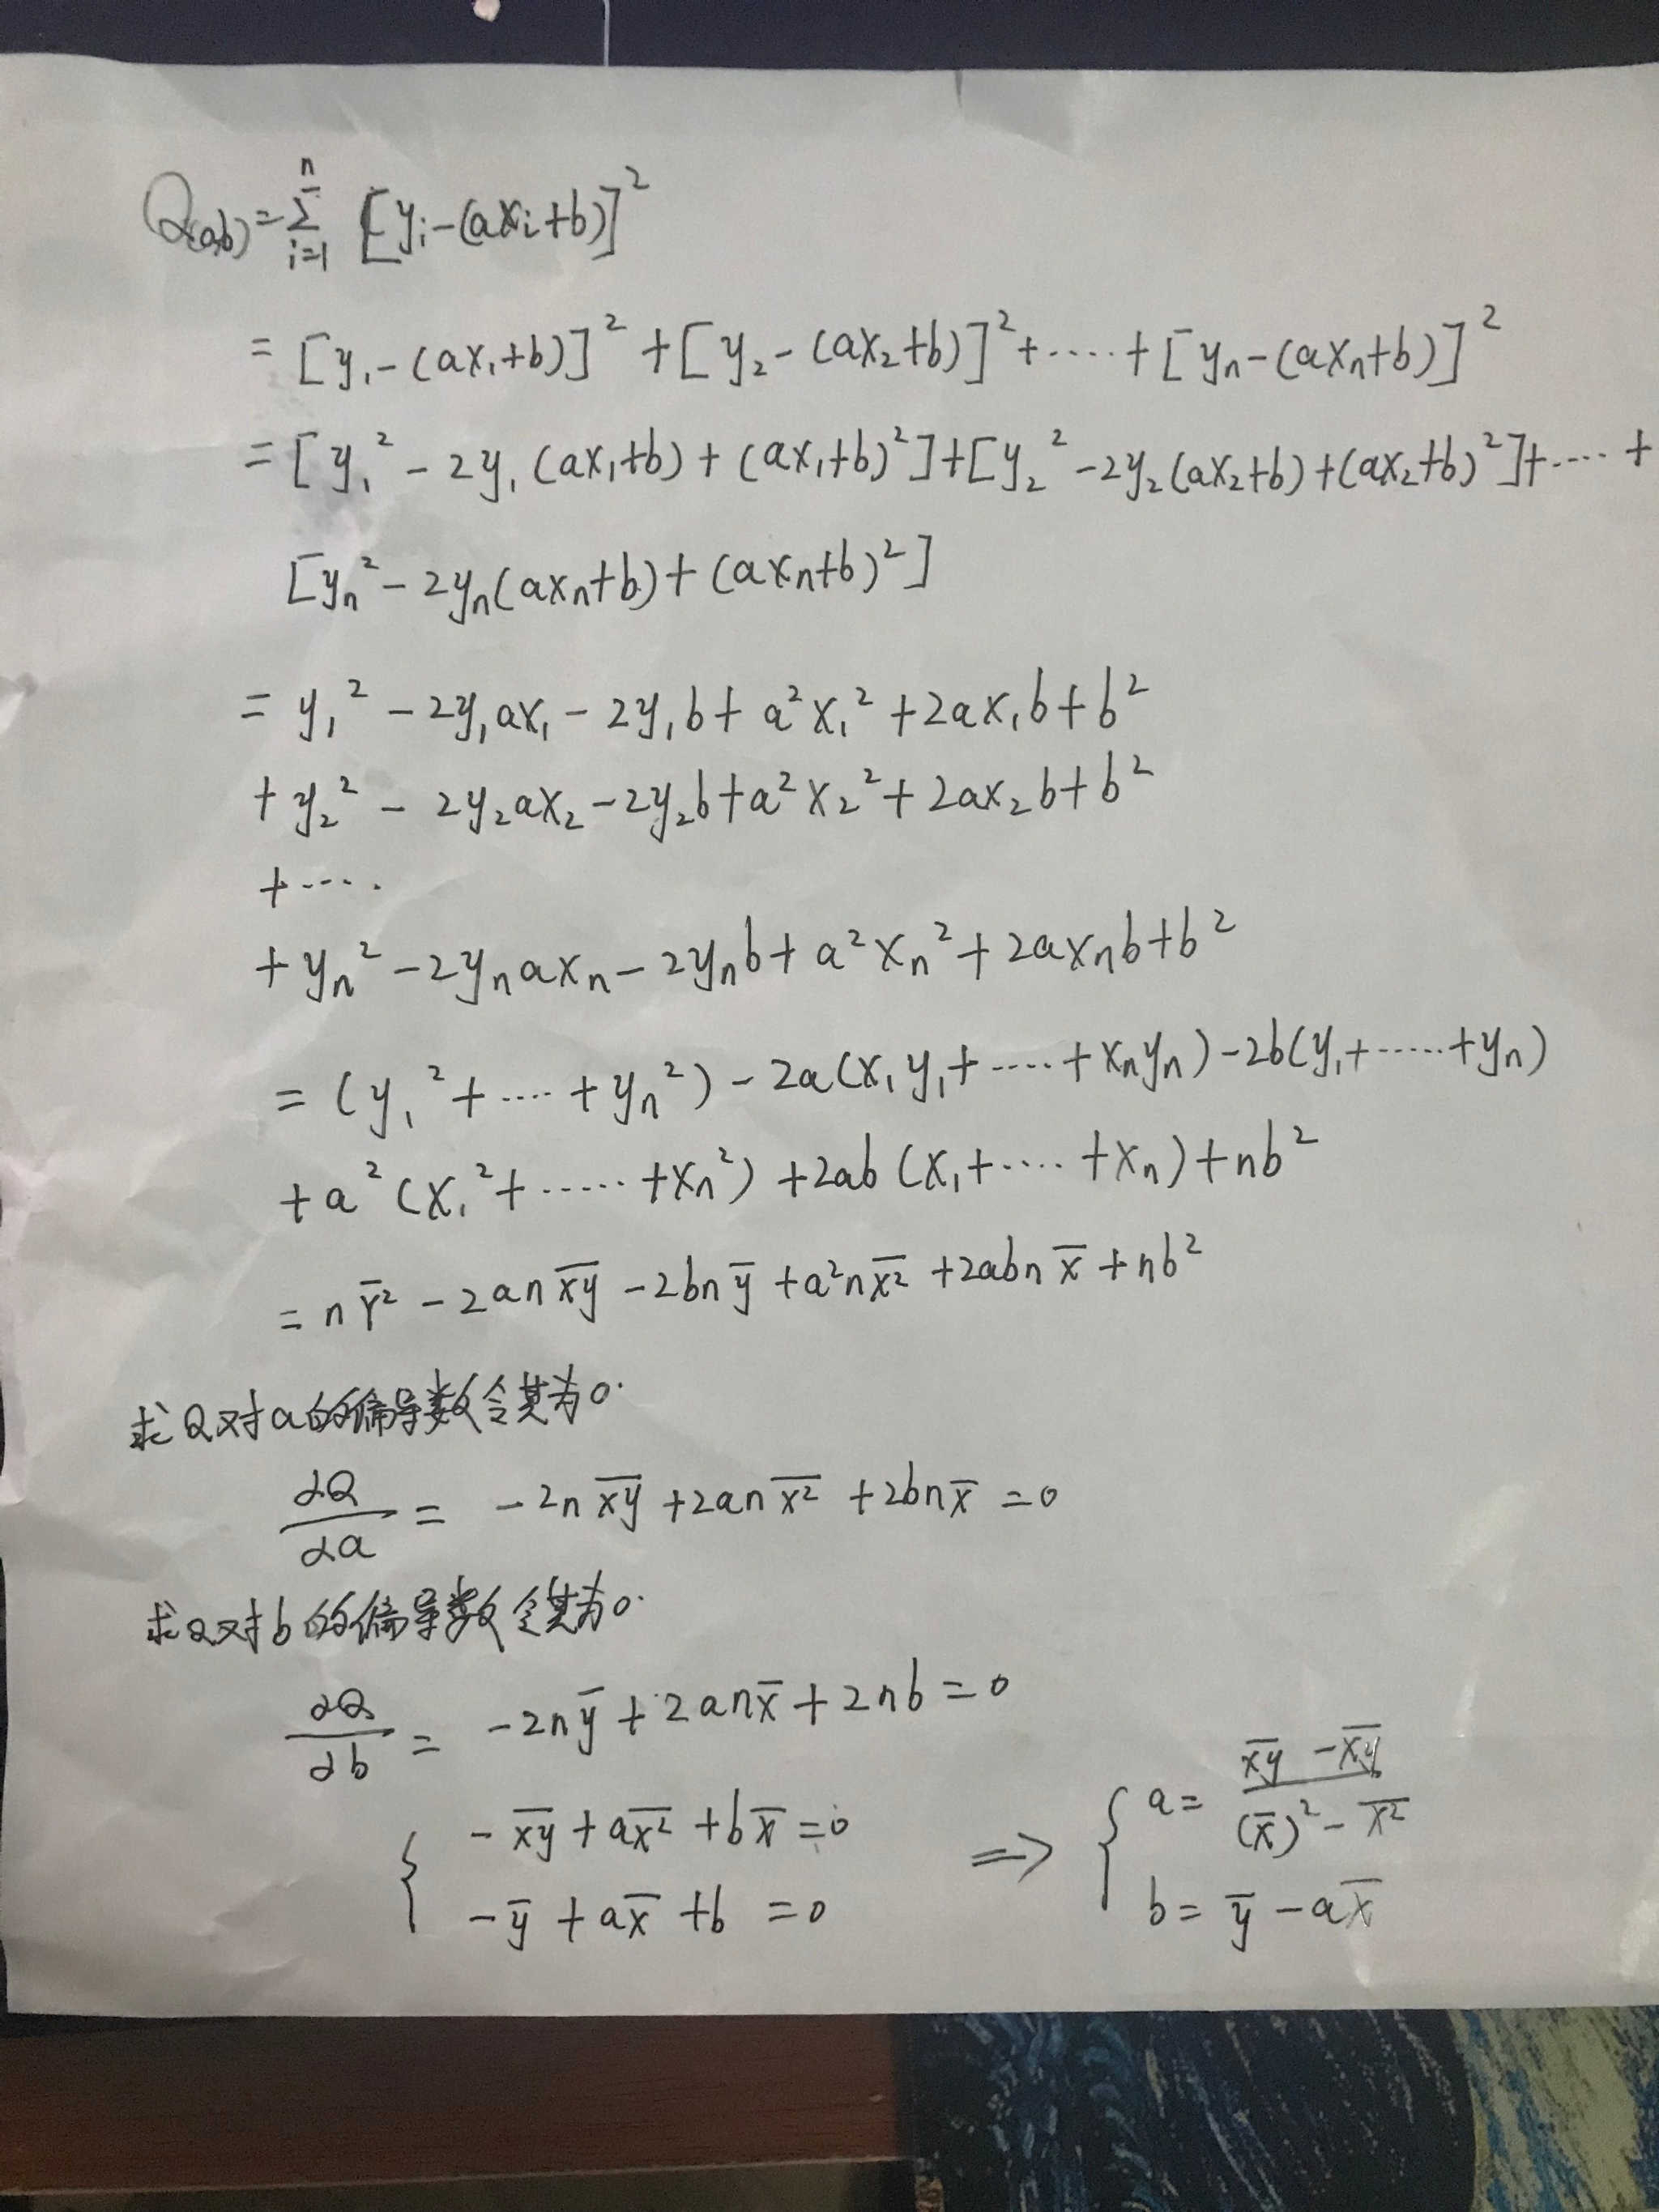 Q(a,b)=∑_{i=1}^{n} [yᵢ-(axᵢ+b)]²
= [y₁-(ax₁+b)]² +[y₂-(ax₂+b)]²+·····+[yₙ-(axₙ+b)]²
=[y₁²-2y₁(ax₁+b)+(ax₁+b)²]+[y₂²-2y₂(ax₂+b)+(ax₂+b)²]+····+
[yₙ²-2yₙ(axₙ+b)+(axₙ+b)²]
= y₁²-2y₁ax₁-2y₁b+a²x₁²+2ax₁b+b²
+y₂²-2y₂ax₂-2y₂b+a²x₂²+2ax₂b+b²
+····
+yₙ²-2yₙaxₙ-2yₙb+a²xₙ²+2axₙb+b²
=(y₁²+····+yₙ²)-2a(x₁y₁+····+xₙyₙ)-2b(y₁+·····+yₙ)
+a²(x₁²+·····+xₙ²)+2ab(x₁+····+xₙ)+nb²
= n\overline{Y²}-2an\overline{xy}-2bn\overline{y}+a²n\overline{x²}+2abn\overline{x}+nb²
求Q对a的偏导数令其为0.
∂Q/∂a = -2n\overline{xy}+2an\overline{x²}+2bn\overline{x}=0
求Q对b的偏导数令其为0.
∂Q/∂b = -2n\overline{y}+2an\overline{x}+2nb=0
{ -\overline{xy}+a\overline{x²}+b\overline{x}=0
-\overline{y}+a\overline{x}+b=0
⇒ { a= (\overline{xy}-\overline{x}\overline{y})/((\overline{x})²-\overline{x²})
b=\overline{y}-a\overline{x}